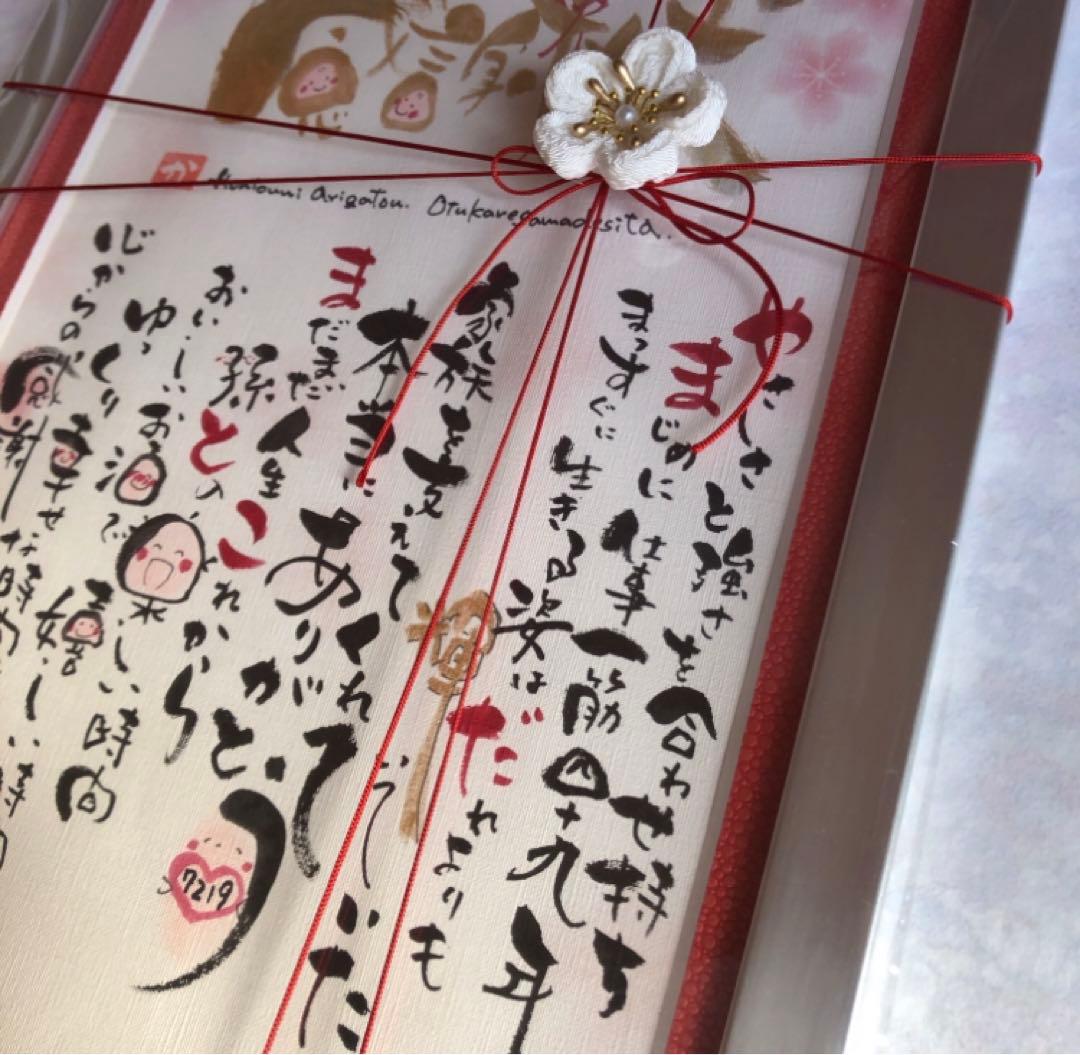 か
Hontouni arigatou. Otukaresamadesita..
やさしさと強さを合わせ持ち
まじめに仕事一筋四十九年
まっすぐに生きる姿は
だれよりも
輝いていた
家族を支えてくれて
本当にありがとう
7219
まだまだ人生これから
孫との楽しい時間
おいしいお酒で嬉しい時
ゆっくり幸せな時間
心からの感謝